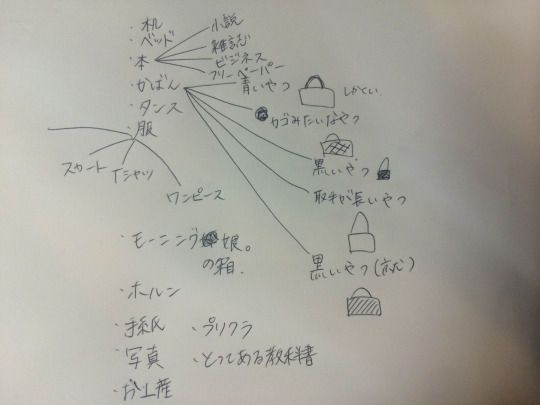 ・机
・ベッド
・本
小説
雑誌
ビジネス
フリーペーパー
・かばん
青いやつ
しかくい
カゴみたいなやつ
黒いやつ
取手が長いやつ
黒いやつ(
・タンス
・服
スカート
Tシャツ
ワンピース
・モーニング娘。
の箱.
・ホルン
・手紙
・プリクラ
・写真
・とってある教科書
・お土産